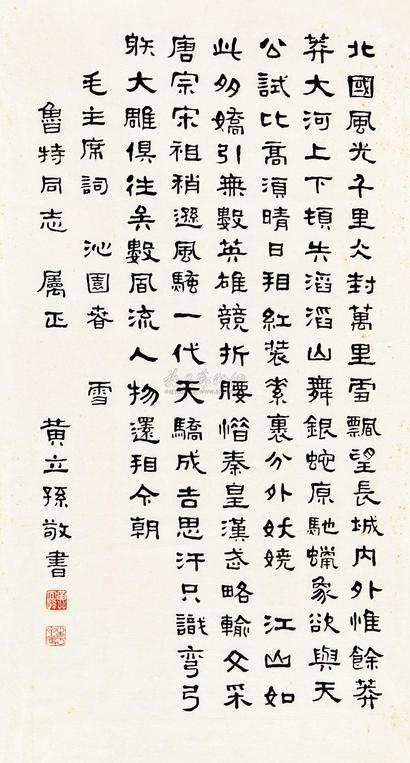 北國風光千里冰封萬里雪飄望長城內外惟餘莽
莽大河上下頓失滔滔山舞銀蛇原馳蠟象欲與天
公試比高須晴日看紅裝素裹分外妖嬈 江山如
此多嬌引無數英雄競折腰惜秦皇漢武略輸文采
唐宗宋祖稍遜風騷一代天驕成吉思汗只識彎弓
射大雕俱往矣數風流人物還看今朝
毛主席詞 沁園春 雪
魯特同志 屬正 黃立孫敬書